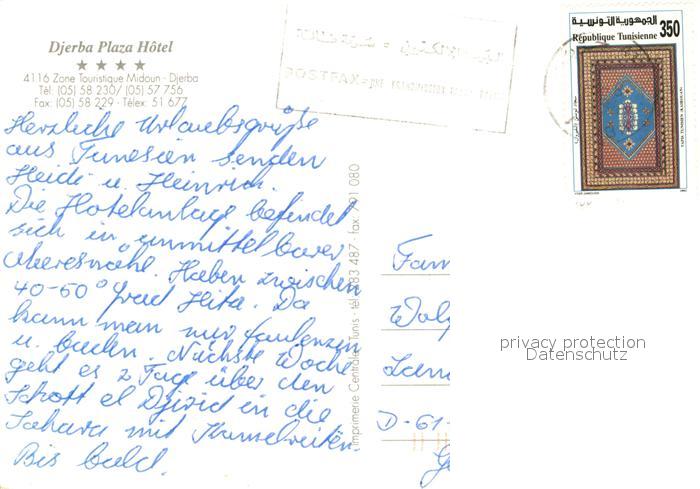 Djerba Plaza Hôtel
★ ★ ★ ★
4116 Zone Touristique Midoun - Djerba
Tél: (05) 58 230/ (05) 57 756
Fax: (05) 58 229 - Télex: 51 677
Herzliche Urlaubsgrüße
aus Tunesien senden
Heidi u. Heinrich.
Die Hotelanlage befindet
sich in unmittelbarer
Meeresnähe. Haben zwischen
40-50° Grad Hitze. Da
kann man nur faulenzen
u. baden. Nächste Woche
geht es 2 Tage über den
Schott el Djirid in die
Sahara mit Kamelreiten.
Bis bald.
Imprimerie Centrale - Tunis - tél 783 487 - fax 701 080
POSTFAX=
الجمهورية التونسية
République Tunisienne 350
Fam
D-61-
privacy protection
Datenschutz